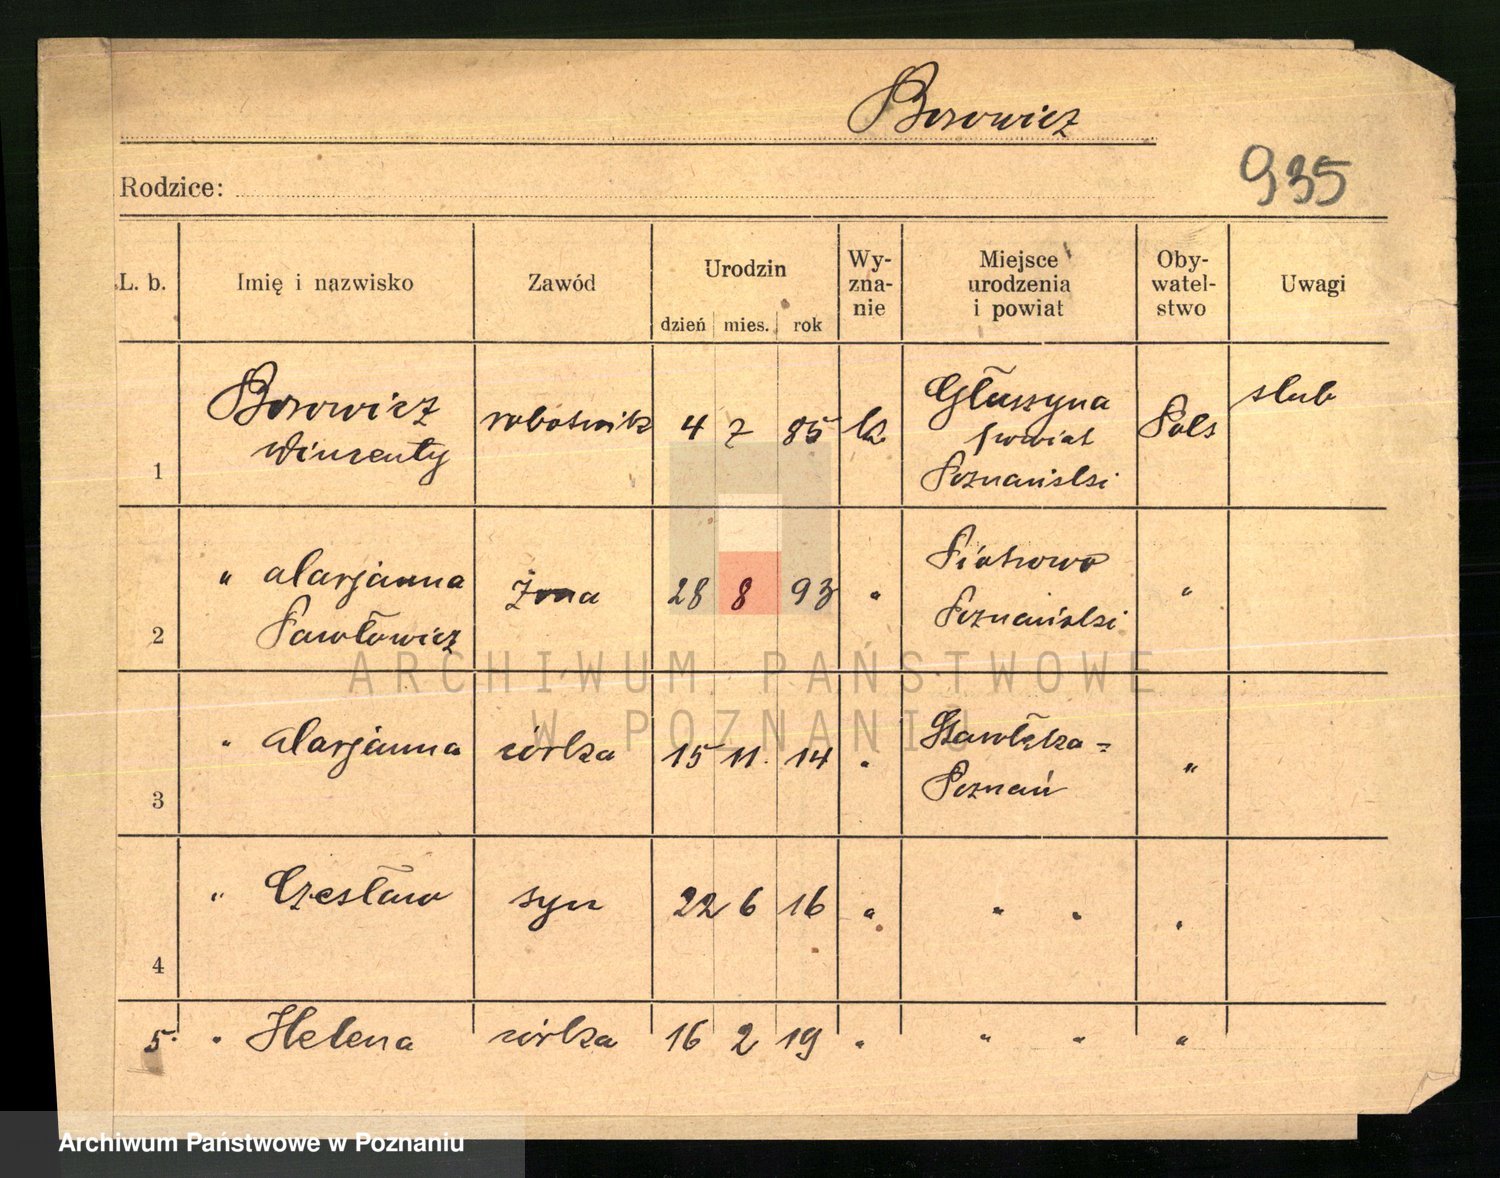 Borowicz
935
Rodzice:
L. b. Imię i nazwisko Zawód Urodzin dzień mies. rok Wy-zna-nie Miejsce urodzenia i powiat Oby-watel-stwo Uwagi
1 Borowicz Wincenty robotnik 4 7 85 k. Głuszyna powiat Poznański Pols slub
2 " Marjanna Pawłowicz żona 28 8 93 " Piotrowo Poznański "
3 " Marjanna córka 15 11. 14 " Główna- Poznań "
4 " Czesław syn 22 6 16 " " " "
5. " Helena córka 16 2 19 " " " "
ARCHIWUM PAŃSTWOWE
W POZNANIU
Archiwum Państwowe w Poznaniu